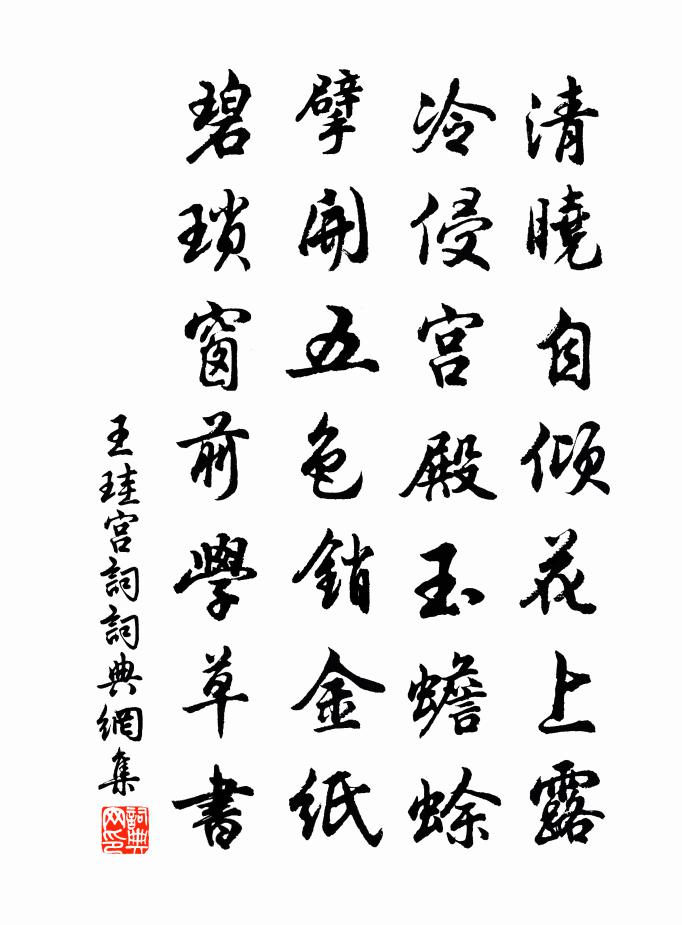 清曉自傾花上露
冷侵宮殿玉蟾蜍
擘開五色銷金紙
碧瑣窗前學草書
王珪宮詞詞典網集
詞典网印